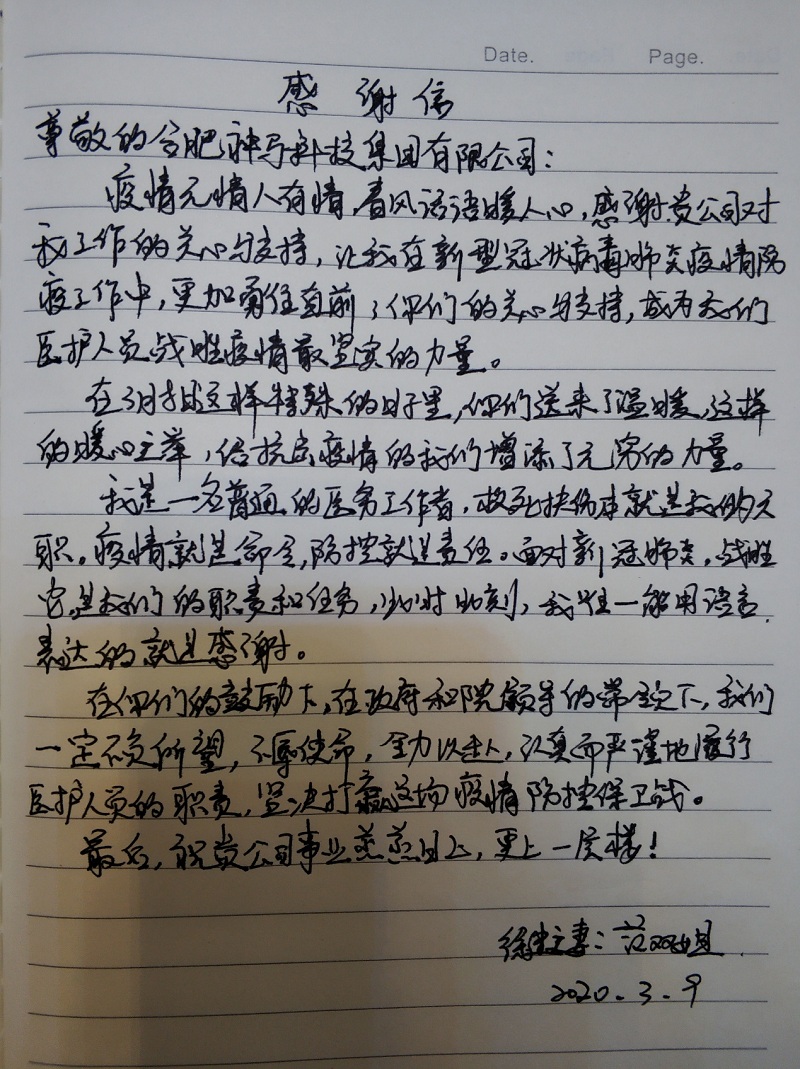 Date. Page.
感谢信
尊敬的合肥神马科技集团有限公司：
疫情无情人有情，春风话语暖人心，感谢贵公司对
我工作的关心与支持，让我在新型冠状病毒肺炎疫情防
疫工作中，更加勇往直前，你们的关心与支持，成为我们
医护人员战胜疫情最坚实的力量。
在3月份这样特殊的日子里，你们送来了温暖，这样
的暖心之举，给抗击疫情的我们增添了无穷的力量。
我是一名普通的医务工作者，救死扶伤本就是我们的天
职。疫情就是命令，防控就是责任。面对新冠肺炎，战胜
它是我们的职责和任务，此时此刻，我唯一能用语言
表达的就是感谢。
在你们的鼓励下，在政府和院领导的带领下，我们
一定不负所望，不辱使命，全力以赴，认真而严谨地履行
医护人员的职责，坚决打赢这场疫情防控保卫战。
最后，祝贵公司事业蒸蒸日上，更上一层楼！
2020.3.9